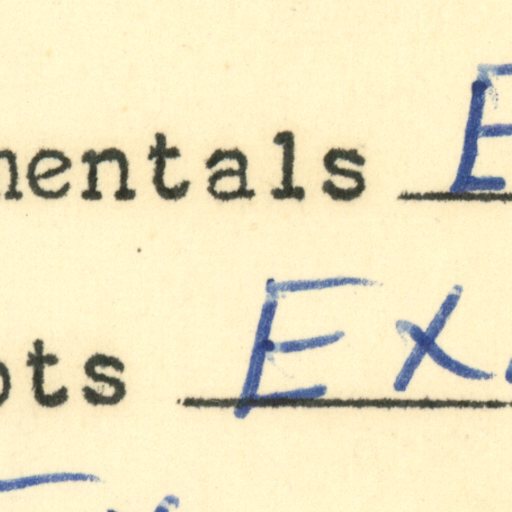 mentals E
ots Ex